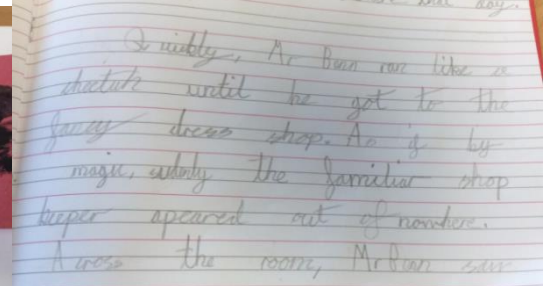 day.
Quickly, Mr Bean ran like a
cheetah until he got to the
fancy dress shop. As if by
magic, sudenly the familiar shop
keeper apeared out of nowhere.
Across the room, Mr Bean saw